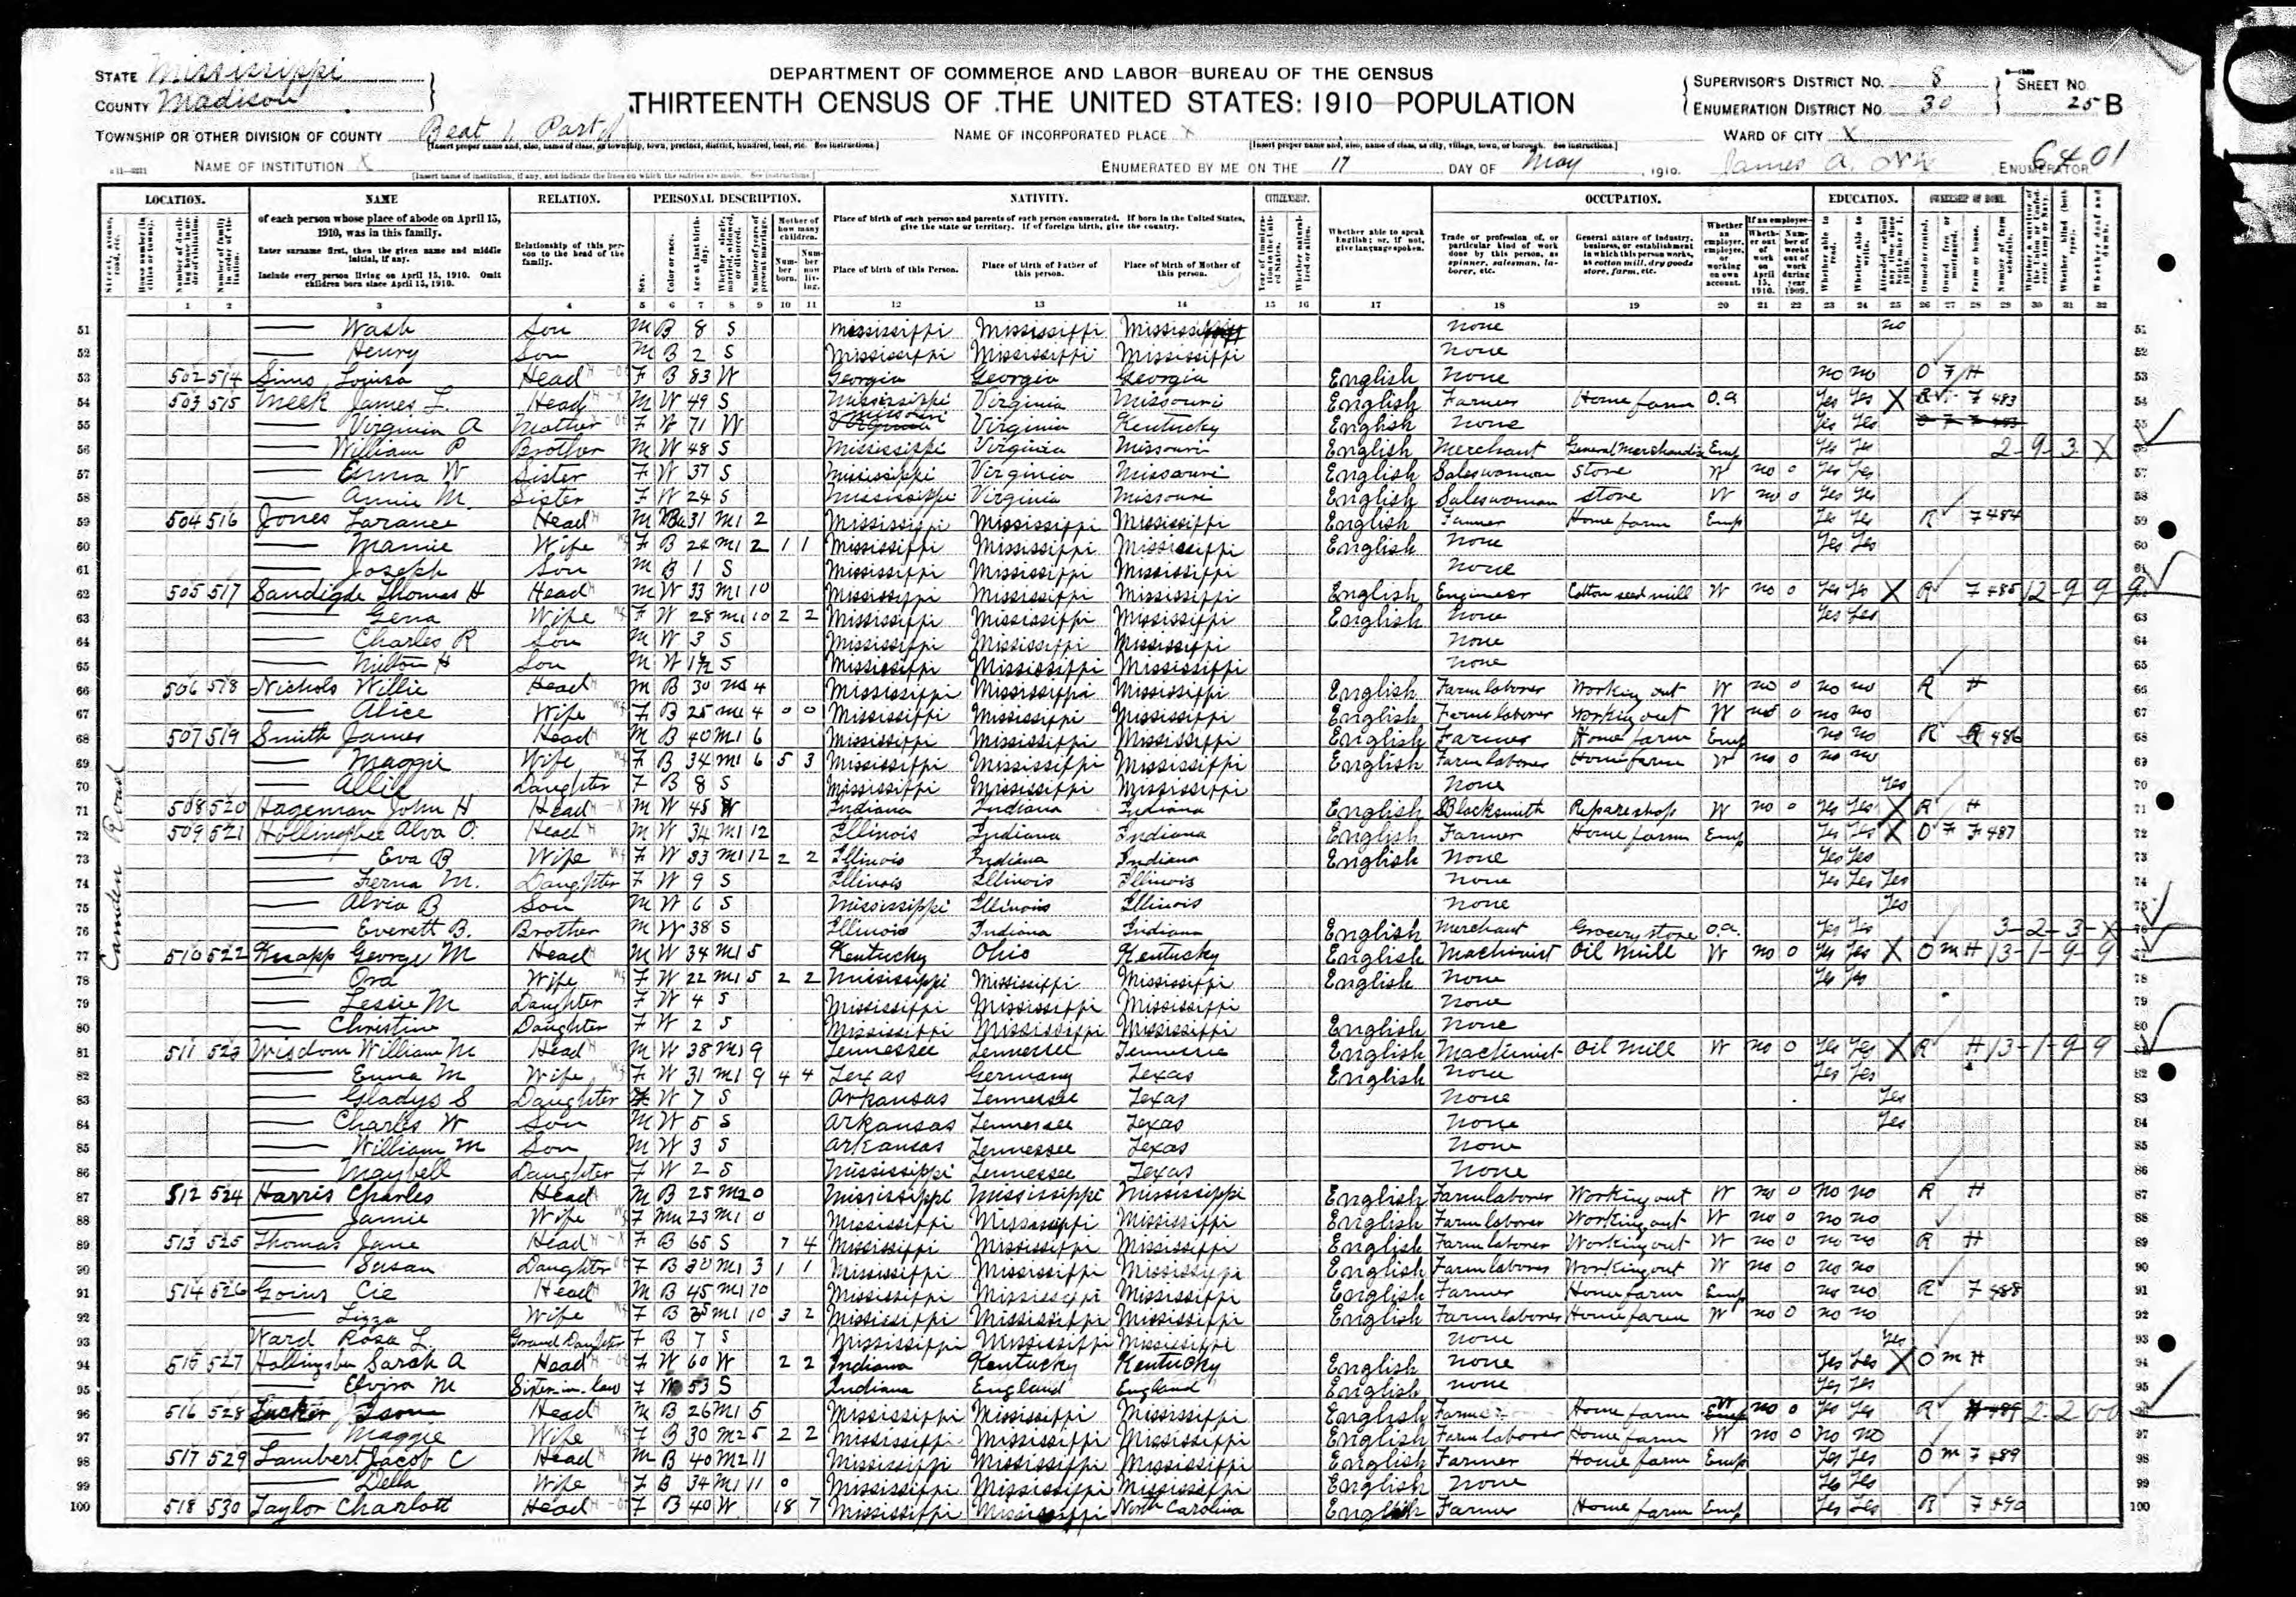 STATE Mississippi
COUNTY Madison
DEPARTMENT OF COMMERCE AND LABOR—BUREAU OF THE CENSUS
THIRTEENTH CENSUS OF THE UNITED STATES: 1910—POPULATION
SUPERVISOR'S DISTRICT NO. 8
ENUMERATION DISTRICT NO. 30
SHEET NO. 25 B
TOWNSHIP OR OTHER DIVISION OF COUNTY Beat 1, Part of
NAME OF INCORPORATED PLACE X
WARD OF CITY X
NAME OF INSTITUTION X
ENUMERATED BY ME ON THE 17 DAY OF May, 1910. James A. ENUMERATOR
6401
LOCATION. NAME RELATION. PERSONAL DESCRIPTION. NATIVITY. CITIZENSHIP. OCCUPATION. EDUCATION. OWNERSHIP OF HOME.
of each person whose place of abode on April 15, 1910, was in this family.
Enter surname first, then the given name and middle initial, if any.
Include every person living on April 15, 1910. Omit children born since April 15, 1910.
Relationship of this person to the head of the family.
Place of birth of each person and parents of each person enumerated. If born in the United States, give the state or territory. If of foreign birth, give the country.
Place of birth of this Person. Place of birth of Father of this person. Place of birth of Mother of this person.
Whether able to speak English; or, if not, give language spoken.
Trade or profession of, or particular kind of work done by this person, as spinner, salesman, laborer, etc.
General nature of industry, business, or establishment in which this person works, as cotton mill, dry goods store, farm, etc.
1 2 3 4 5 6 7 8 9 10 11 12 13 14 15 16 17 18 19 20 21 22 23 24 25 26 27 28 29 30 31 32
Camden Road
51 — Wash Son M B 8 S Mississippi Mississippi Mississippi none no
52 — Henry Son M B 2 S Mississippi Mississippi Mississippi none
53 502 514 Sims Louisa Head F B 83 W Georgia Georgia Georgia English none no no O F H
54 503 515 Meek James L. Head M W 49 S Mississippi Virginia Missouri English Farmer Home farm O.a Yes Yes X R F 483
55 — Virginia A Mother F W 71 W Missouri Virginia Kentucky English none Yes Yes
56 — William P Brother M W 48 S Mississippi Virginia Missouri English Merchant General Merchandise Emp Yes Yes 2-9-3 X
57 — Emma W Sister F W 37 S Mississippi Virginia Missouri English Saleswoman Store W no 0 Yes Yes
58 — Annie M. Sister F W 24 S Mississippi Virginia Missouri English Saleswoman store W no 0 Yes Yes
59 504 516 Jones Larance Head M 31 M1 2 Mississippi Mississippi Mississippi English Farmer Home farm Emp Yes Yes R F 484
60 — Mamie Wife F B 24 M1 2 1 1 Mississippi Mississippi Mississippi English none Yes Yes
61 — Joseph Son M B 1 S Mississippi Mississippi Mississippi none
62 505 517 Thomas H Head M W 33 M1 10 Mississippi Mississippi Mississippi English Engineer Cotton seed mill W no 0 Yes Yes X R F 485 12-9 9 9
63 — Gena Wife F W 28 M1 10 2 2 Mississippi Mississippi Mississippi English none Yes Yes
64 — Charles R Son M W 3 S Mississippi Mississippi Mississippi none
65 — Milton H Son M W S Mississippi Mississippi Mississippi none
66 506 518 Nichols Willie Head M B 30 4 Mississippi Mississippi Mississippi English Farm laborer Working out W no 0 no no R H
67 — Alice Wife F B 25 M1 4 0 0 Mississippi Mississippi Mississippi English Farm laborer Working out W no 0 no no
68 507 519 Smith James Head M B 40 M1 6 Mississippi Mississippi Mississippi English Farmer Home farm Emp no no R 486
69 — Maggie Wife F B 34 M1 6 5 3 Mississippi Mississippi Mississippi English Farm laborer Home farm W no 0 no no
70 — Allie Daughter F B 8 S Mississippi Mississippi Mississippi none Yes
71 508 520 Hageman John H Head M W 45 W Indiana Indiana Indiana English Blacksmith Repare shop W no 0 Yes Yes X R H
72 509 521 Alva O. Head M W 34 M1 12 Illinois Indiana Indiana English Farmer Home farm Emp Yes Yes X O F F 487
73 — Eva B Wife F W 33 M1 12 2 2 Illinois Indiana Indiana English none Yes Yes
74 — Ferna M. Daughter F W 9 S Illinois Illinois Illinois none Yes Yes Yes
75 — Alvia B Son M W 6 S Mississippi Illinois Illinois none Yes
76 — Everett B. Brother M W 38 S Illinois Indiana Indiana English Merchant Grocery store O.a. Yes Yes 3-2-3-X
77 510 522 Knapp George M Head M W 34 M1 5 Kentucky Ohio Kentucky English Machinist Oil Mill W no 0 Yes Yes X O M H 13-1-9-9
78 — Ora Wife F W 22 M1 5 2 2 Mississippi Mississippi Mississippi English none Yes Yes
79 — Lessie M Daughter F W 4 S Mississippi Mississippi Mississippi none
80 — Christine Daughter F W 2 S Mississippi Mississippi Mississippi English none
81 511 523 Wisdom William M Head M W 38 M1 9 Tennessee Tennessee Tennessee English Machinist Oil Mill W no 0 Yes Yes X R H 13-1-9-9
82 — Emma M Wife F W 31 M1 9 4 4 Texas Germany Texas English none Yes Yes
83 — Gladys S Daughter F W 7 S Arkansas Tennessee Texas none Yes
84 — Charles W Son M W 5 S Arkansas Tennessee Texas none Yes
85 — William M Son M W 3 S Arkansas Tennessee Texas none
86 — Maybell Daughter F W 2 S Mississippi Tennessee Texas none
87 512 524 Harris Charles Head M B 25 M2 0 Mississippi Mississippi Mississippi English Farm laborer Working out W no 0 no no R H
88 — Jamie Wife F Mu 23 M1 0 Mississippi Mississippi Mississippi English Farm laborer Working out W no 0 no no
89 513 525 Thomas Jane Head F B 65 S 7 4 Mississippi Mississippi Mississippi English Farm laborer Working out W no 0 no no R H
90 — Susan Daughter F B 30 M1 3 1 1 Mississippi Mississippi Mississippi English Farm laborer Working out W no 0 no no
91 514 526 Goins Cie Head M B 45 M1 10 Mississippi Mississippi Mississippi English Farmer Home farm Emp no no R F 488
92 — Lizza Wife F B 35 M1 10 3 2 Mississippi Mississippi Mississippi English Farm laborer Home farm W no 0 no no
93 Ward Rosa L. Grand Daughter F B 7 S Mississippi Mississippi Mississippi none Yes
94 515 527 Sarah A Head F W 60 W 2 2 Indiana Kentucky Kentucky English none Yes Yes X O M H
95 — Elvira M Sister-in-law F W 53 S Indiana England England English none Yes Yes
96 516 528 Tucker Head M B 26 M1 5 Mississippi Mississippi Mississippi English Farmer Home farm W no 0 Yes Yes R 2 2 0 0
97 — Maggie Wife F B 30 M2 5 2 2 Mississippi Mississippi Mississippi English Farm laborer Home farm W no 0 no no
98 517 529 Lambert Jacob C Head M B 40 M2 11 Mississippi Mississippi Mississippi English Farmer Home farm Emp Yes Yes O M F 489
99 — Della Wife F B 34 M1 11 0 Mississippi Mississippi Mississippi English none Yes Yes
100 518 530 Taylor Charlott Head F B 40 W 18 7 Mississippi Mississippi North Carolina English Farmer Home farm Emp Yes Yes R F 490